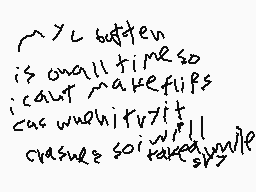 my L button
is onalltime so
i caut make flips
cas whenitryit
crashes so i will
take a while
srry